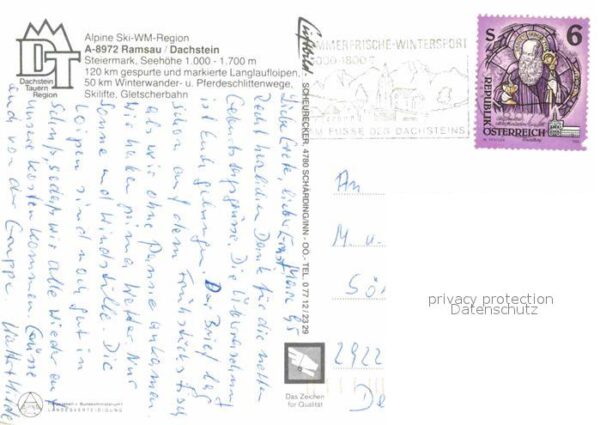 Alpine Ski-WM-Region
A-8972 Ramsau / Dachstein
Steiermark, Seehöhe 1.000 - 1.700 m
120 km gespurte und markierte Langlaufloipen,
50 km Winterwander- u. Pferdeschlittenwege,
Skilifte, Gletscherbahn
DT
Dachstein
Tauern
Region
März 95
Liebe Grete, lieber Ernst
Recht herzlichen Dank für die netten
Geburtstagsgrüsse. Die Überraschung
ist Euch gelungen. Der Brief lag
schon auf dem Frühstückstisch
als wir ohne Panne ankamen.
Wir haben prima Wetter. Nur
Sonne und Windstille. Die
Loipen sind noch gut in
Schuß, sodass wir alle wieder auf
unsere Kosten kommen. Grüsse
auch von der Gruppe.
Luftbild - SCHEURECKER, 4780 SCHÄRDING/INN - OÖ. - TEL. 0 77 12 / 23 29
SOMMERFRISCHE-WINTERSPORT
AM FUSSE DES DACHSTEINS
S 6
REPUBLIK
ÖSTERREICH
An
M. u.
2922
privacy protection
Datenschutz
Das Zeichen
für Qualität
LANDESVERTEIDIGUNG